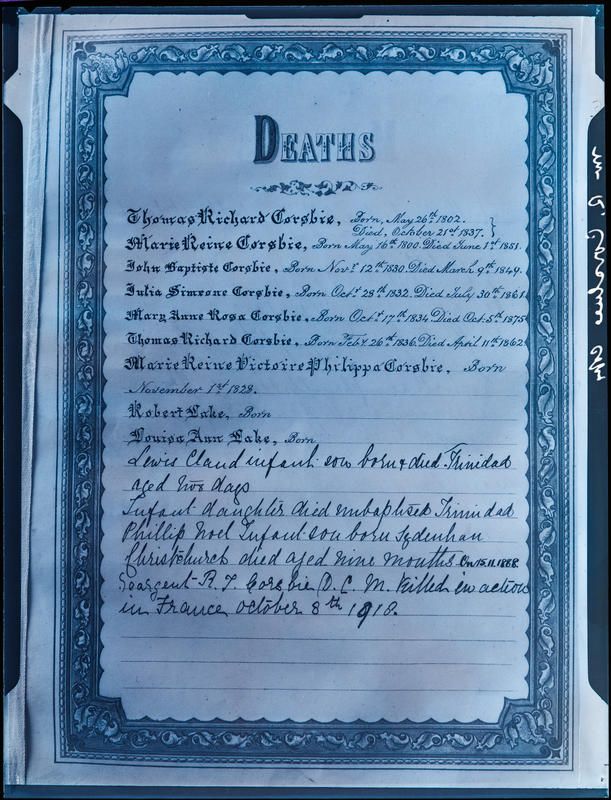 DEATHS
Thomas Richard Corsbie, Born, May 26th 1802.
Died, October 21st 1837. }
Marie Reine Corsbie, Born May 16th 1800. Died June 1st 1851.
John Baptiste Corsbie, Born Novr 12th 1830. Died March 9th 1849.
Julia Simeone Corsbie, Born Octr 28th 1832. Died July 30th 1861
Mary Anne Rosa Corsbie, Born Octr 17th 1834. Died Oct. 5th 1875
Thomas Richard Corsbie, Born Feby 26th 1836. Died April 11th 1862
Marie Reine Victoire Philippa Corsbie, Born
November 1st 1828.
Robert Lake, Born
Louisa Ann Lake, Born
Lewis Claud infant son born & died Trinidad
aged two days
Infant daughter died unbaptised Trinidad
Phillip Noel Infant son born Sydenham
Christchurch died aged nine months On 15.11.1888.
Seargent R. T. Corsbie D. C. M. Killed in action
in France October 8th 1918.